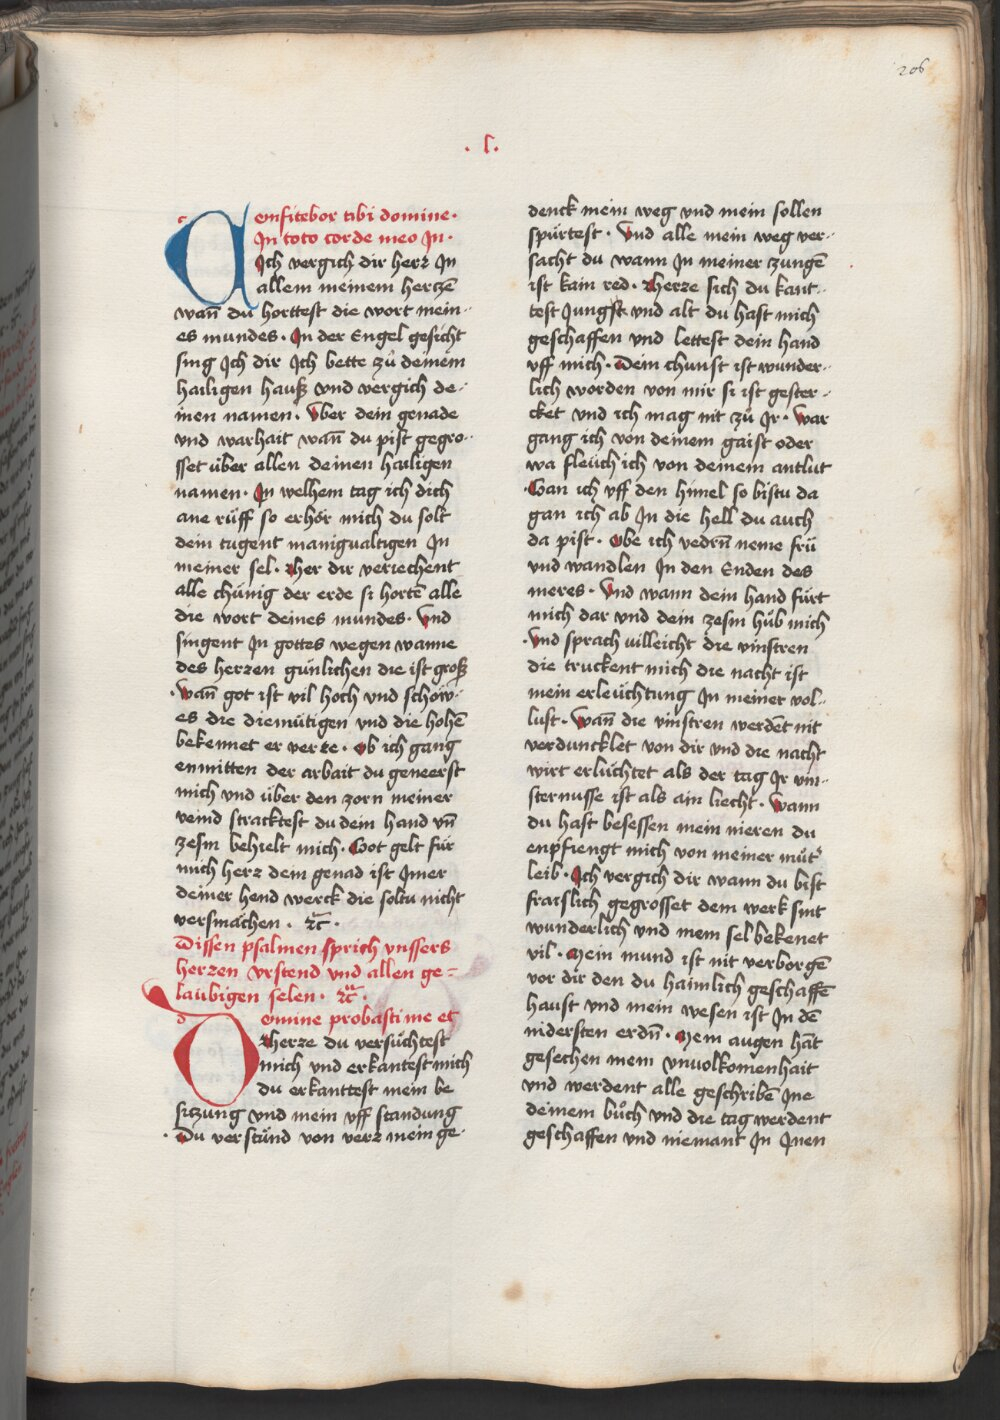 206
. l.
Confitebor tibi domine.
In toto corde meo In.
Ich vergich dir herz In
allem meinem hertzē
wañ du horttest die wort mein-
es mundes. In der Engel gesicht
sing Ich dir Ich bette zů deinem
hailigen hauß vnd vergich de-
inen namen. Vber dein genade
vnd warhait wañ du pist gegro-
sset über allen deinen hailigen
namen. In welhem tag ich dich
ane rüff so erhör mich du solt
dein tugent manigualtigen In
meiner sel. Her dir veriechent
alle chünig der erde si hortē alle
die wort deines mundes. Vnd
singent In gottes wegen wanne
des herzen günlichen die ist groß
. Wañ got ist vil hoch vnd schow-
es die diemütigen vnd die hohē
bekennet er verre. Ob ich gang
enmitten der arbait du geneerst
mich vnd über den zorn meiner
veind stracktest du dein hand vñ
zesm behielt mich. Got gelt für
mich herz dem genad ist Imer
deiner hend werck die soltu nicht
versmächen. ꝛc̄.
Dissen psalmen sprich vnssers
herzen vrstend vnd allen ge-
laübigen selen. ꝛc̄.
Domine probasti me et
Herze du versüchtest
mich vnd erkantest mich
du erkanttest mein be
sitzung vnd mein vff standung
. Du verstünd von verz mein ge-
denck mein weg vnd mein sollen
spürtest. Vnd alle mein weg ver-
sacht du wann In meiner zungē
ist kain red. Herze sich du kant-
test Jungst vnd alt du hast mich
geschaffen vnd lettest dein hand
vff mich. Dein chunst ist wunder-
lich worden von mir si ist gester-
cket vnd ich mag nit zů Ir. War
gang ich von deinem gaist oder
wa fleüch ich von deinem antlut
. Gan ich vff den himel so bistu da
gan ich ab In die hell du auch
da pist. Obe ich vedrñ neme frü
vnd wandlen In den Enden des
meres. Vnd wann dein hand fürt
mich dar vnd dein zesm hůb mich
. Vnd sprach villeicht die vinstren
die truckent mich die nacht ist
mein erleüchtung In meiner vol-
lust. Wañ die vinstren werdēt nit
verduncklet von dir vnd die nacht
wirt erlüchtet als der tag Ir vin-
sternusse ist als ain liecht. Wann
du hast besessen mein nieren du
enpfiengt mich von meiner můt͛
leib. Ich vergich dir wann du bist
fraislich gegrosset dem werk sint
wunderlich vnd mein sel bekenet
vil. Mein mund ist nit verborgē
vor dir den du haimlich geschaffē
haust vnd mein wesen ist In dē
nidersten erdñ. Mein augen hāt
gesechen mein vnuolkomenhait
vnd werdent alle geschribē Ine
deinem bůch vnd die tag werdent
geschaffen vnd niemant In Inen